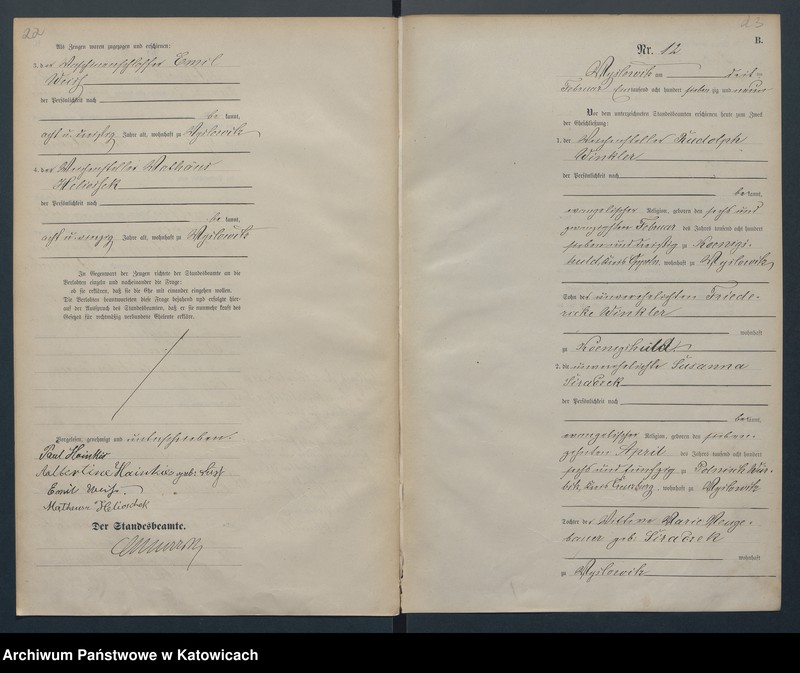 22
Als Zeugen waren zugezogen und erschienen:
3. der Maschinenschlosser Emil
Weiß
der Persönlichkeit nach
be kannt,
acht u. dreißig Jahre alt, wohnhaft zu Myslowitz
4. der Weichensteller Mathäus
Helioschek
der Persönlichkeit nach
be kannt,
acht u. vierzig Jahre alt, wohnhaft zu Myslowitz
In Gegenwart der Zeugen richtete der Standesbeamte an die
Verlobten einzeln und nacheinander die Frage:
ob sie erklären, daß sie die Ehe mit einander eingehen wollen.
Die Verlobten beantworteten diese Frage bejahend und erfolgte hier-
auf der Ausspruch des Standesbeamten, daß er sie nunmehr kraft des
Gesetzes für rechtmäßig verbundene Eheleute erkläre.
Vorgelesen, genehmigt und unterschrieben.
Paul Hainke
Hainke geb.
Emil Weiß.
Mathaeus Helioschek
Der Standesbeamte.
23
B.
Nr. 12
Myslowitz am drit-
Februar tausend acht hundert sieben zig und neun
Vor dem unterzeichneten Standesbeamten erschienen heute zum Zweck
der Eheschließung:
1. der Weichensteller Rudolph
Winkler
der Persönlichkeit nach
be kannt,
evangelischer Religion, geboren den sechs und
zwanzigsten Februar des Jahres tausend acht hundert
sieben und dreißig zu Koenigs-
huld, Kreis Oppeln, wohnhaft zu Myslowitz
Sohn der unverehelichten Friede-
ricke Winkler
wohnhaft
zu Koenigshuld.
2. die unverehelichte Susanna
Siradeck
der Persönlichkeit nach
be kannt,
evangelischer Religion, geboren den sieben-
zehnten April des Jahres tausend acht hundert
sechs und fünfzig zu Polnisch Wür-
bitz, Kreis Creuzburg, wohnhaft zu Myslowitz
Tochter der Wittwe Marie Neuge-
bauer geb. Siradeck
wohnhaft
zu Myslowitz
Archiwum Państwowe w Katowicach